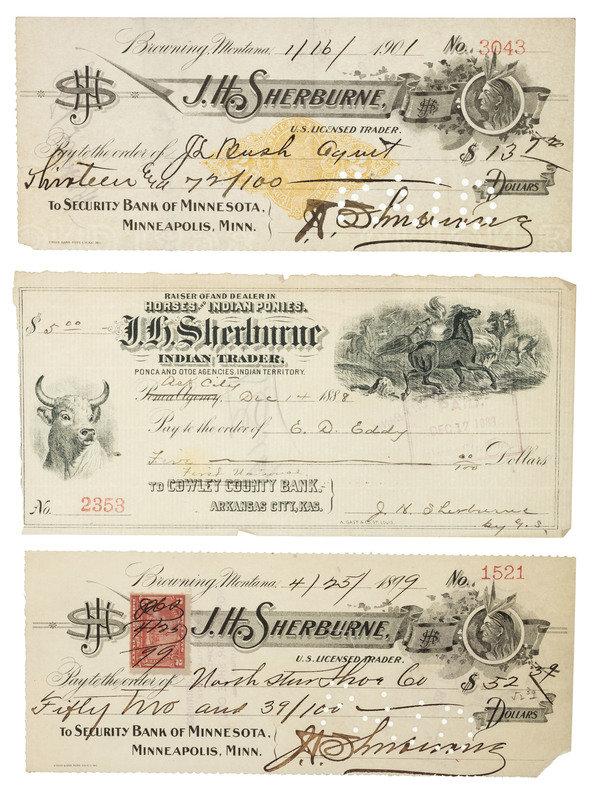 Browning, Montana. 1/16/ 1901 No. 3043
J.H. SHERBURNE,
U.S. LICENSED TRADER.
Pay to the order of JL Bush Agent $ 13 72
Thirteen and 72/100 DOLLARS
TO SECURITY BANK OF MINNESOTA,
MINNEAPOLIS, MINN.
J H Sherburne
RAISER OF AND DEALER IN
HORSES AND INDIAN PONIES.
$ 5 00
J.H. Sherburne
INDIAN TRADER,
PONCA AND OTOE AGENCIES, INDIAN TERRITORY.
Ark City
Ponca Agency, Dec 14 1888
Pay to the order of E. D. Eddy
DEC 17
Five 00/100 Dollars
First National
TO COWLEY COUNTY BANK,
No. 2353 ARKANSAS CITY, KAS.
A. GAST & CO. ST. LOUIS.
J. H. Sherburne
by G. S.
Browning, Montana. 4/25/ 1899 No. 1521
J.H. SHERBURNE,
U.S. LICENSED TRADER.
99
Pay to the order of North Star Shoe Co $ 52 39
Fifty two and 39/100 DOLLARS
TO SECURITY BANK OF MINNESOTA,
MINNEAPOLIS, MINN.
J H Sherburne